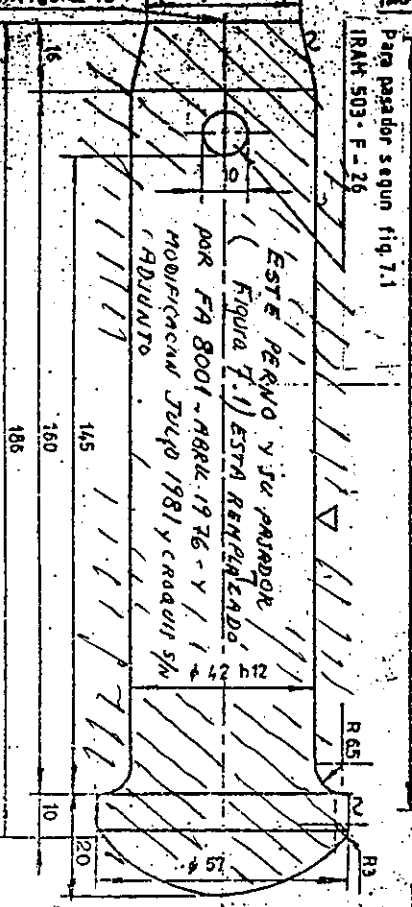 Para pasador segun fig. 7.1
IRAM 503 - F - 26
ESTE PERNO Y SU PASADOR
(Figura 7.1) ESTA REMPLAZADO
POR FA 8001 - ABRIL 1976 - Y
MODIFICACION JULIO 1981 Y CROQUIS S/N
ADJUNTO
16
10
R 65
R3
2
2
φ 57
145
160
186
10
20